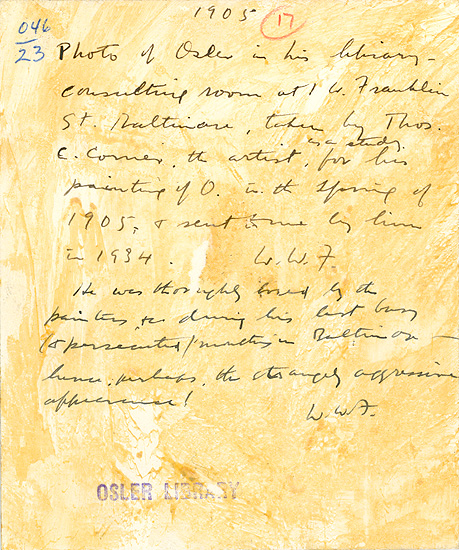 1905 17
046
23
Photo of Osler in his library-
consulting room at 1 W. Franklin
St. Baltimore, taken by Thos.
as a study,
C. Corner, the artist, for his
painting of O. in the Spring of
1905, & sent to me by him
in 1934. W.W.F.
He was thoroughly bored by the
painters, &c during his last busy
(& persecuted) months in Baltimore —
hence, perhaps, the strangely aggressive
appearance!
W.W.F.
OSLER LIBRARY